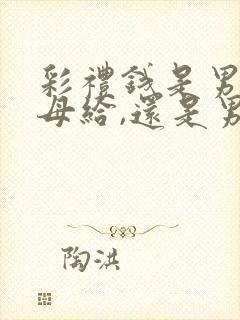 彩禮錢是男
母給,還是男
陶洪